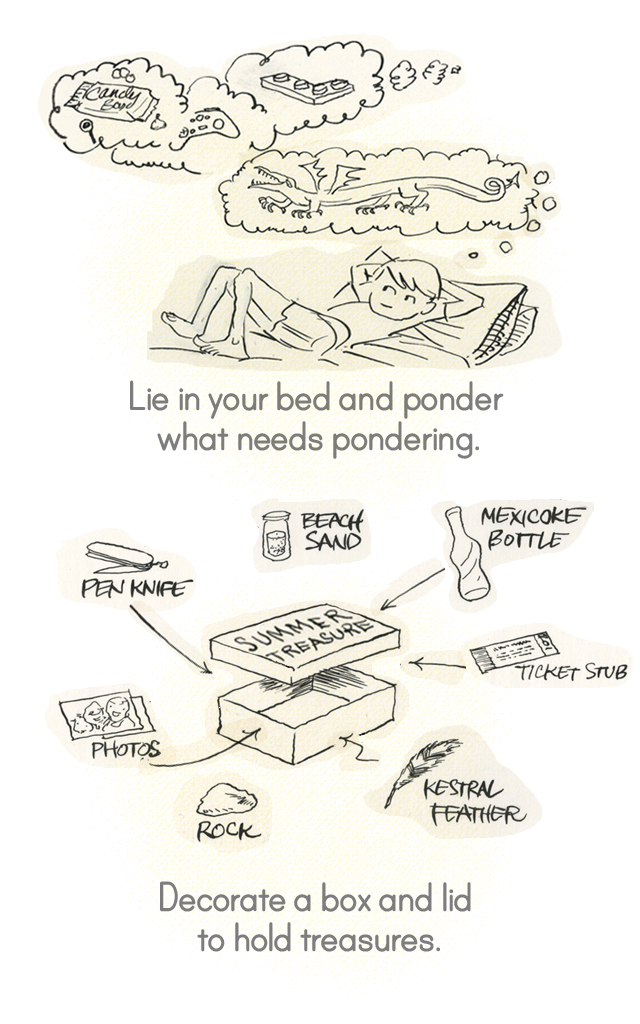 Candy
Bar
Lie in your bed and ponder
what needs pondering.
BEACH
SAND
MEXICOKE
BOTTLE
PEN KNIFE
SUMMER
TREASURE
TICKET STUB
PHOTOS
KESTRAL
FEATHER
ROCK
Decorate a box and lid
to hold treasures.